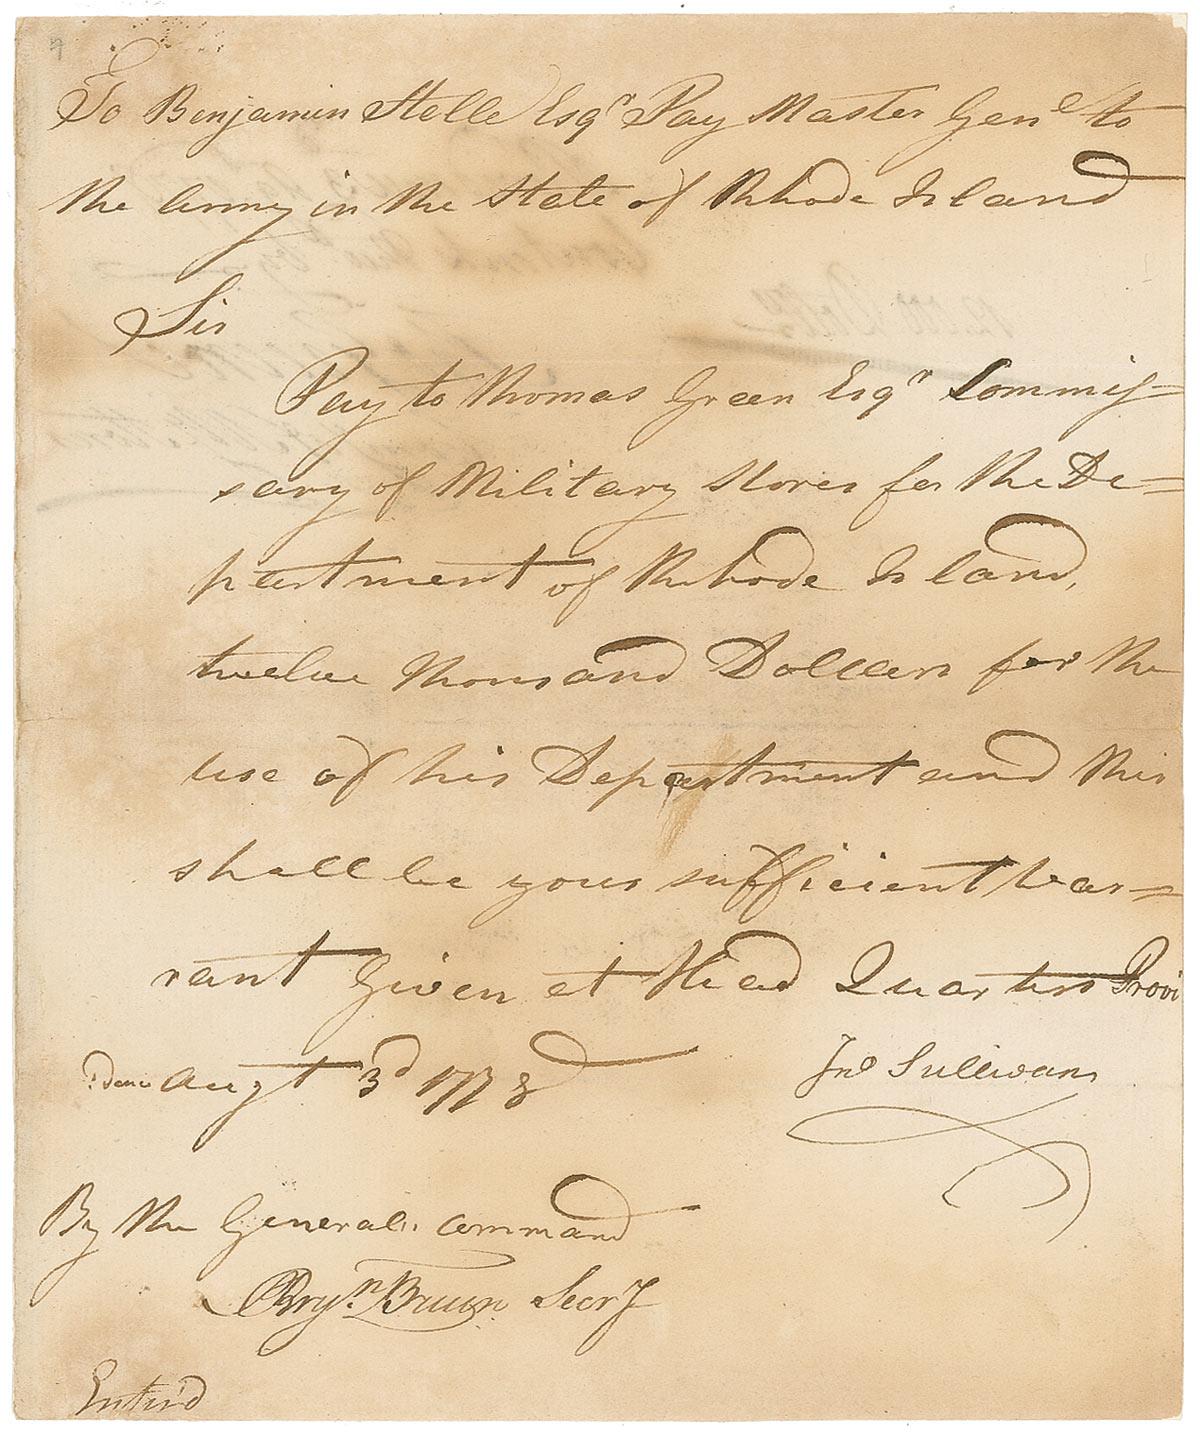 To Benjamin Stelle Esqr Pay Master Genel to
the Army in the State of Rhode Island
Sir
Pay to Thomas Green Esqr Commis=
sary of Military Stores for the De=
partment of Rhode Island,
twelve thousand Dollars for the
use of his Department and this
shall be your sufficient War=
rant Given at Head Quarters Provi
:dence Augt 3d 1778
Jno Sullivan
By the Generals command
Secry
Enter'd